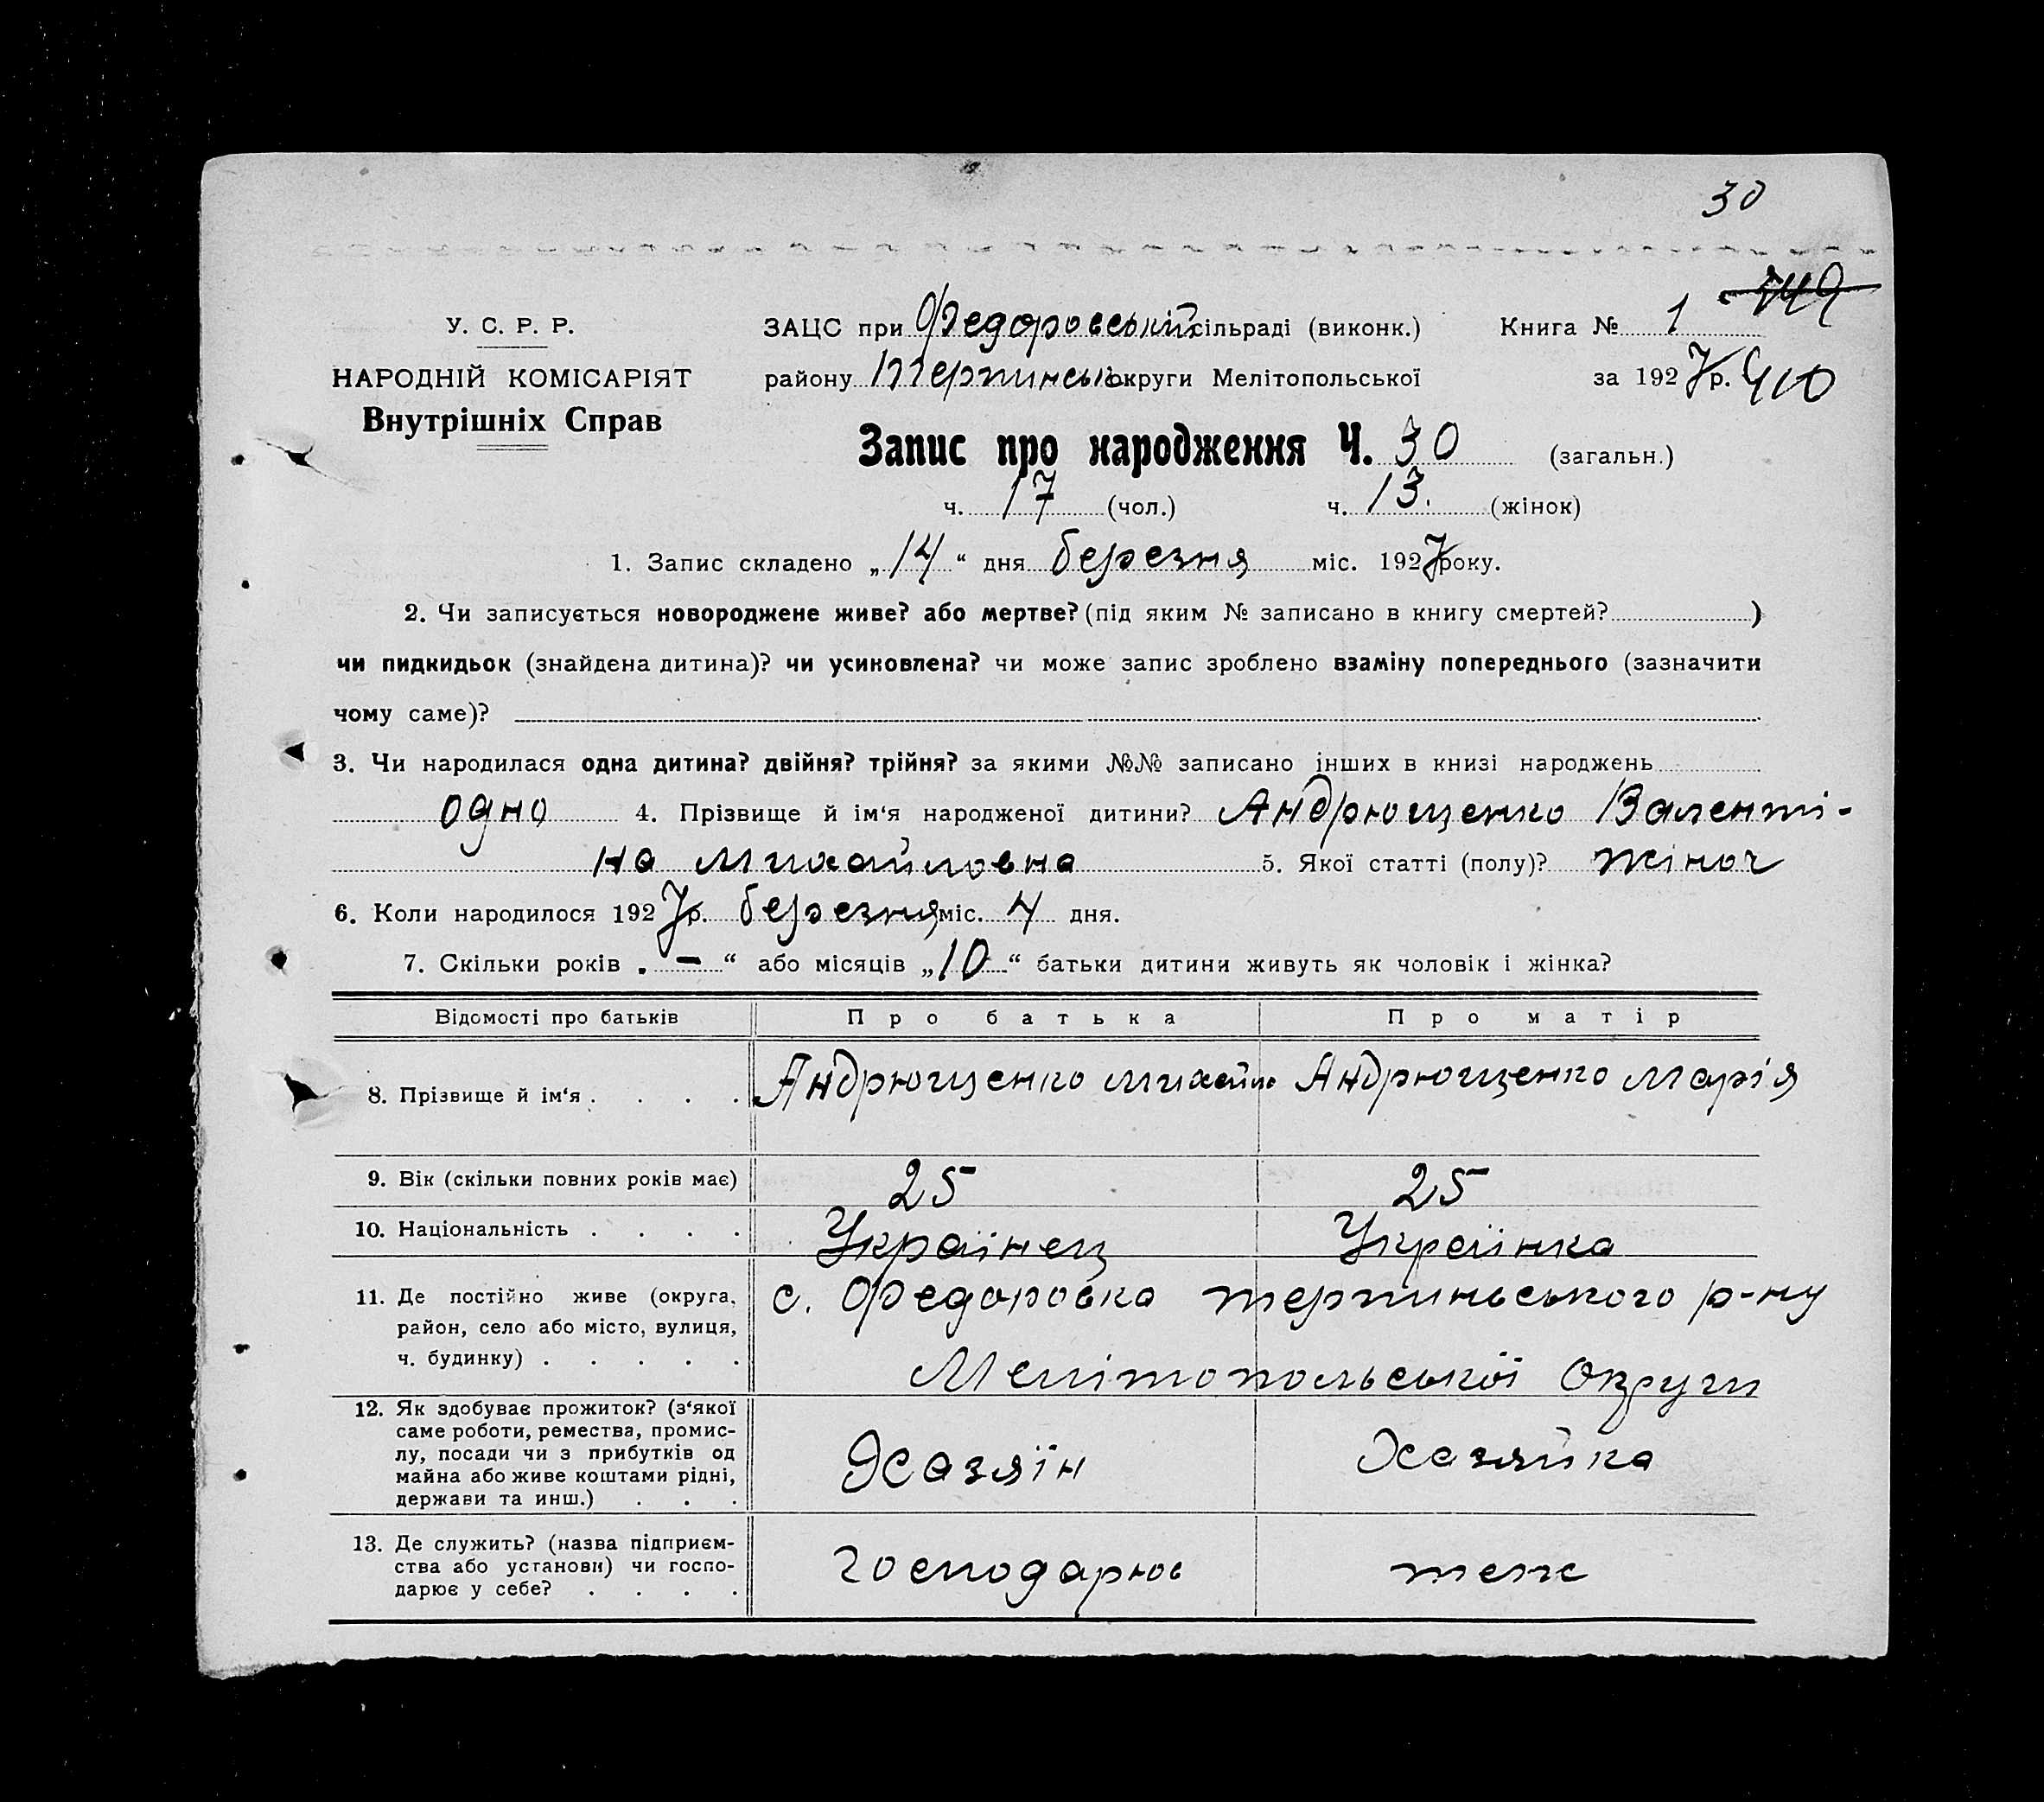 30
У. С. Р. Р.
НАРОДНІЙ КОМІСАРІЯТ
Внутрішніх Справ
ЗАЦС при Федоровській сільраді (виконк.)
району Терпинськ округи Мелітопольської
Книга № 1
за 1927 р.
Запис про народження Ч. 30 (загальн.)
ч. 17 (чол.) ч. 13. (жінок)
1. Запис складено „14“ дня березня міс. 1927 року.
2. Чи записується новороджене живе? або мертве? (під яким № записано в книгу смертей? )
чи пидкидьок (знайдена дитина)? чи усиновлена? чи може запис зроблено взаміну попереднього (зазначити
чому саме)?
3. Чи народилася одна дитина? двійня? трійня? за якими №№ записано інших в книзі народжень
одно 4. Прізвище й ім‘я народженої дитини? Андрющенко Валенті-
на Михайловна 5. Якої статті (полу)? жіноч
6. Коли народилося 1927 р. березня міс. 4 дня.
7. Скільки років „ — “ або місяців „10“ батьки дитини живуть як чоловік і жінка?
Відомості про батьків Про батька Про матір
8. Прізвище й ім‘я . . . . Андрющенко Михайло Андрющенко Марія
9. Вік (скільки повних років має) 25 25
10. Національність . . . . Українец Українка
11. Де постійно живе (округа, с. Федоровка терпиньського р-ну
район, село або місто, вулиця,
ч. будинку) . . . . . Мелітопольської Округи
12. Як здобуває прожиток? (з‘якої
саме роботи, ремества, промис-
лу, посади чи з прибутків од Хазяїн Хазяйка
майна або живе коштами рідні,
держави та инш.) . . .
13. Де служить? (назва підприєм-
ства або установи) чи госпо- господарює теж
дарює у себе? . . . .